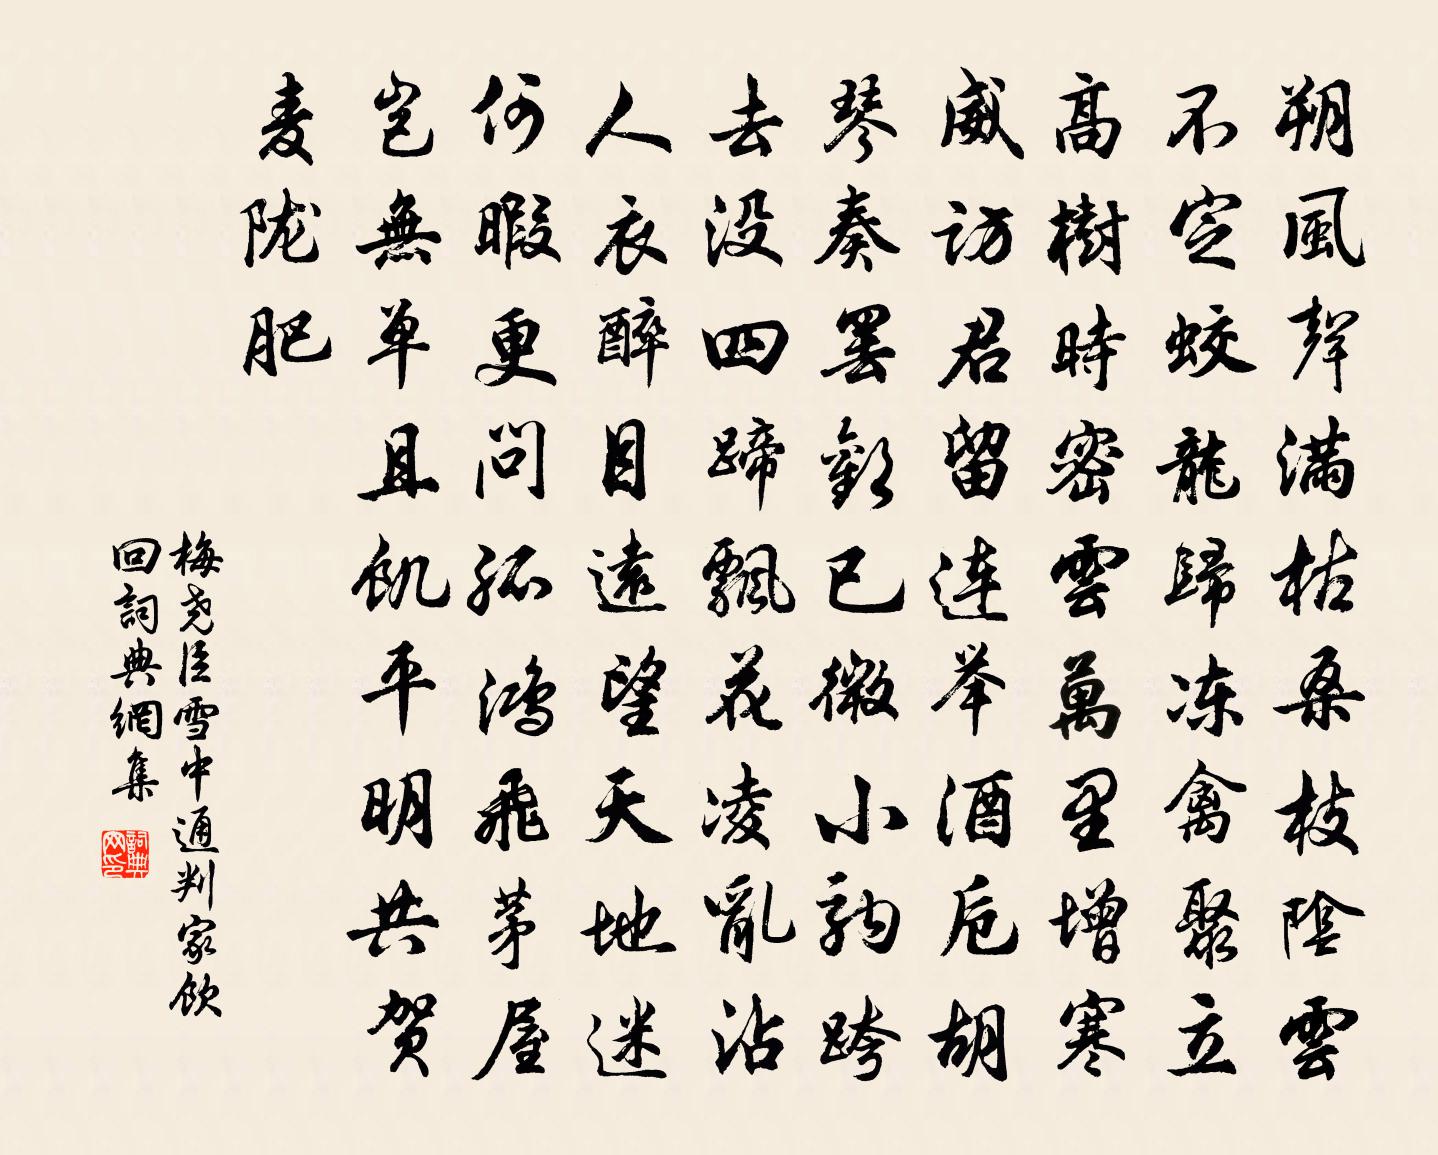 朔風聲滿枯桑枝陰雲
不定蛟龍歸冻禽聚立
高樹時密雲萬里增寒
威訪君留連举酒卮胡
琴奏罢歡已微小駒跨
去没四蹄飄花凌亂沾
人衣醉目遠望天地迷
何暇更問孤鸿飛茅屋
岂無单且飢平明共贺
麦陇肥
梅尧臣雪中通判家飲
回詞典網集
詞典网印